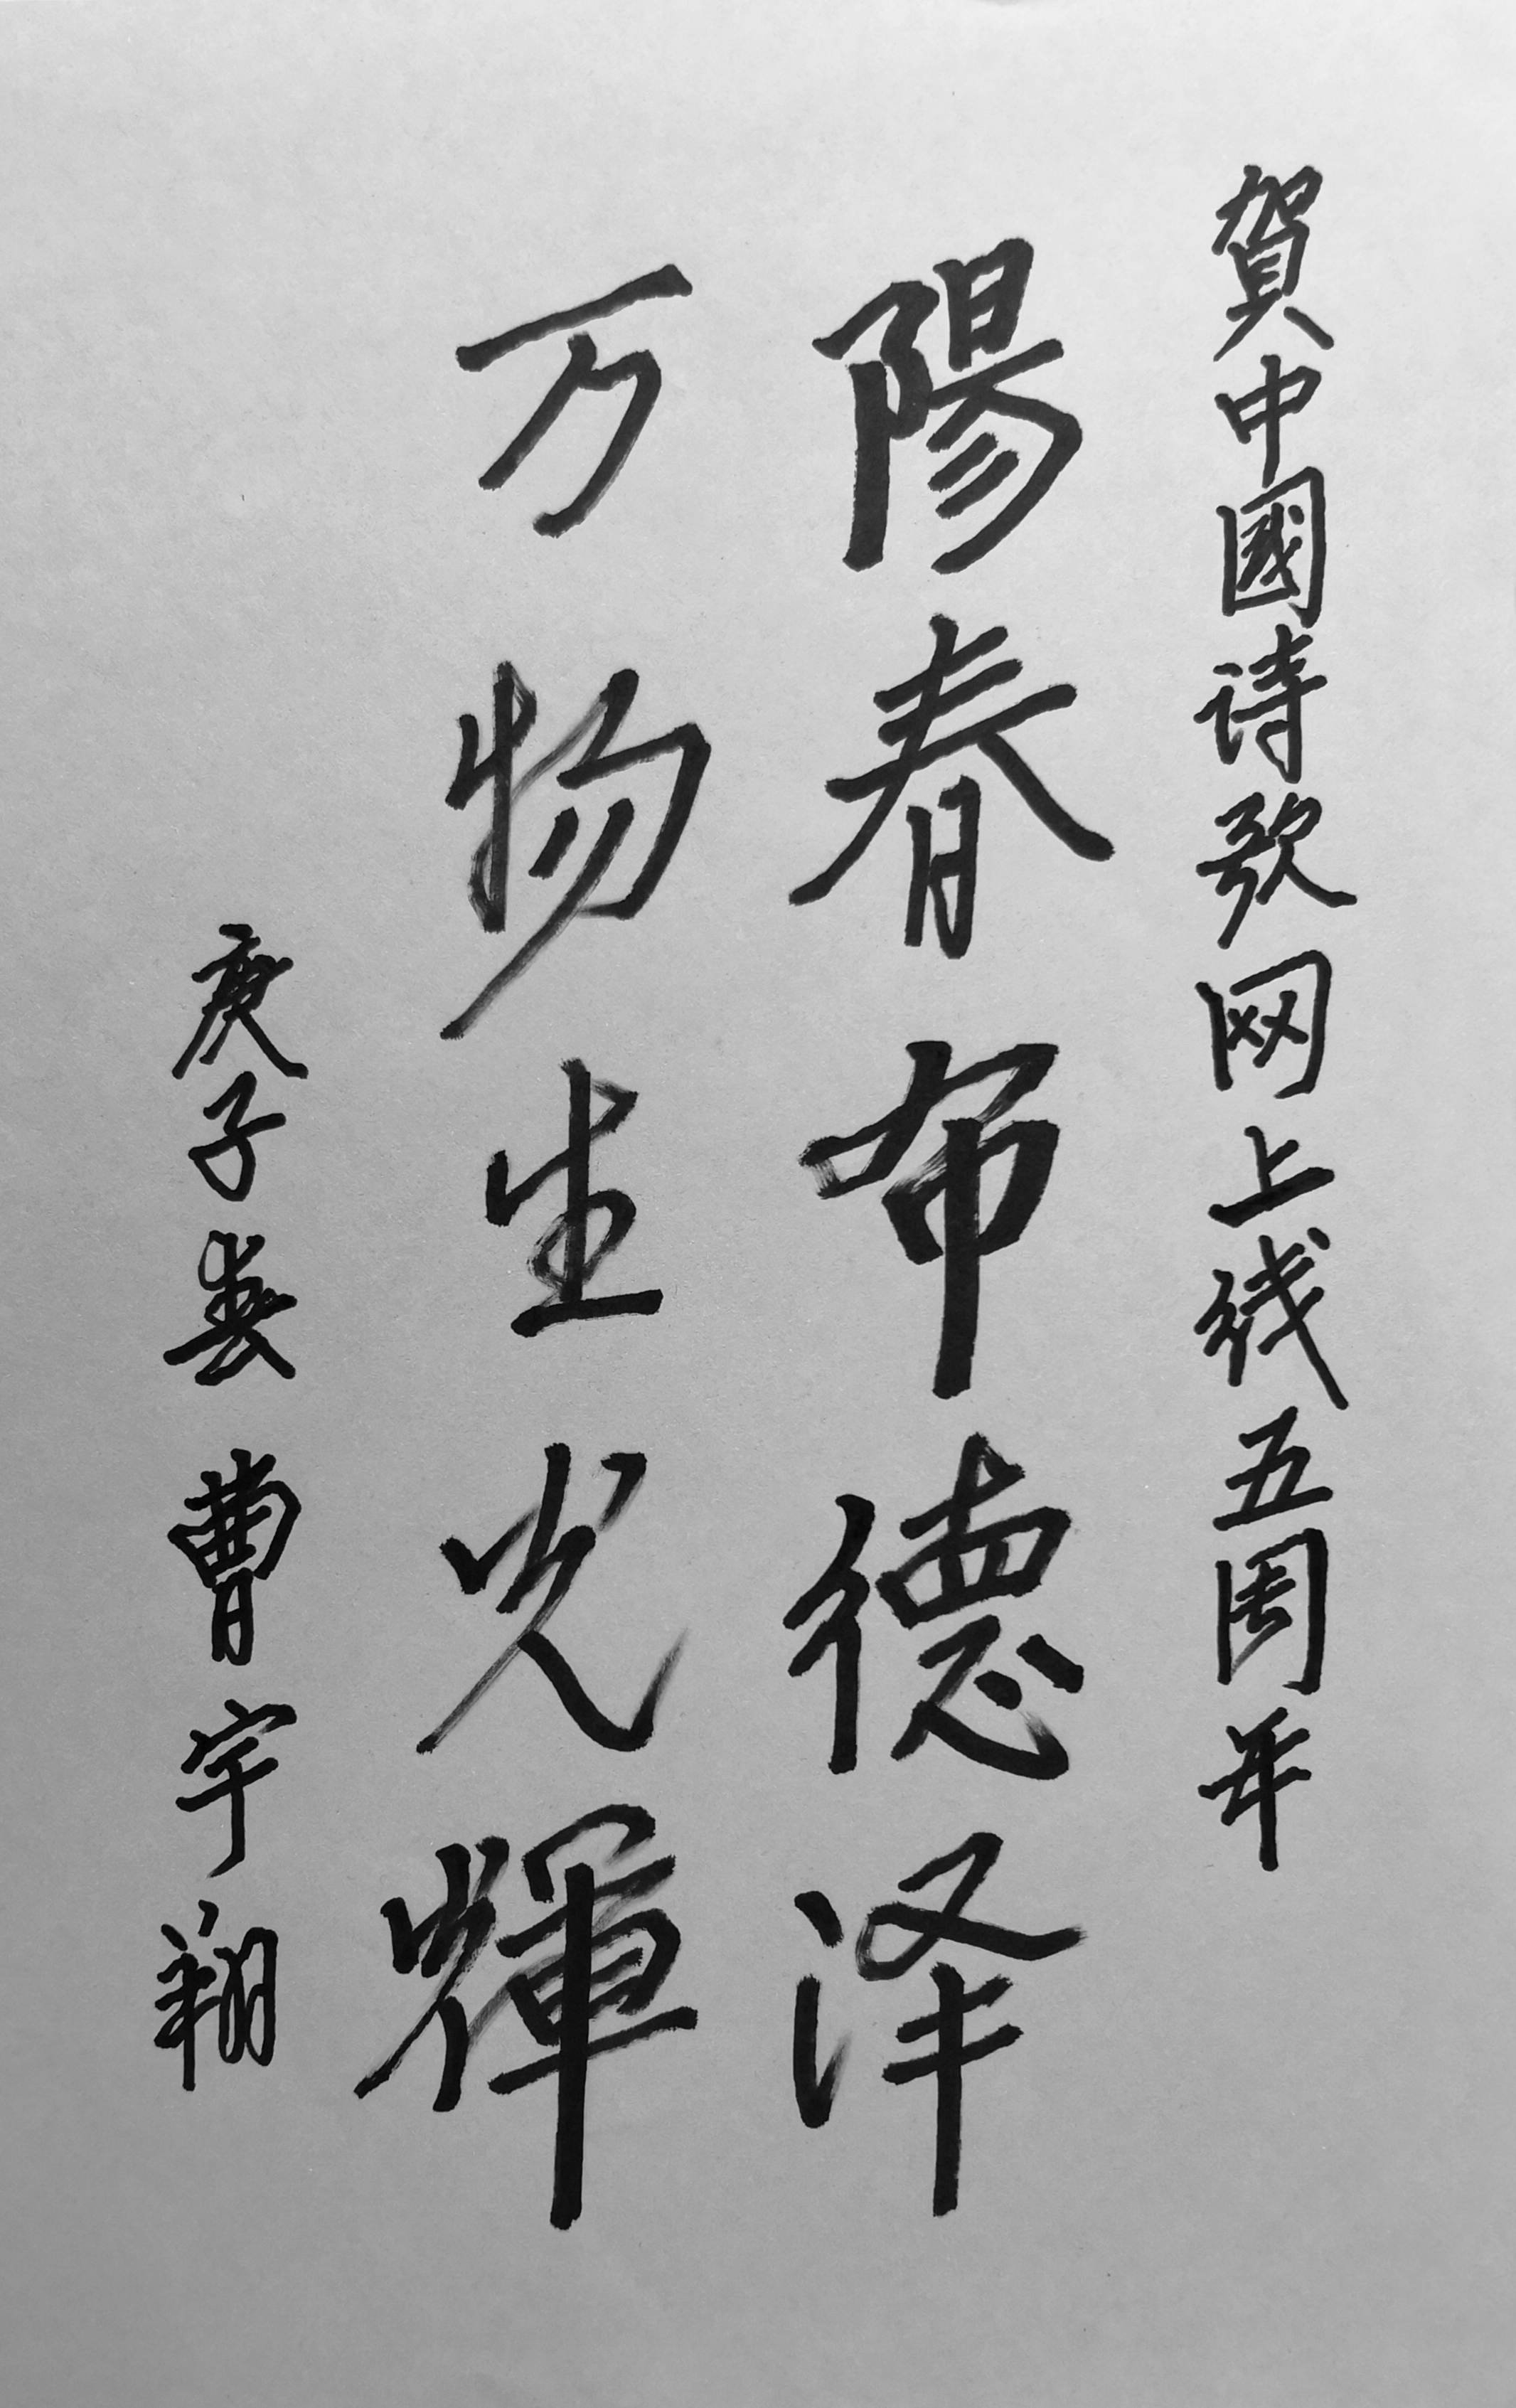 賀中國诗歌网上线五周年
陽春布德泽
万物生光輝
庚子春 曹宇翔